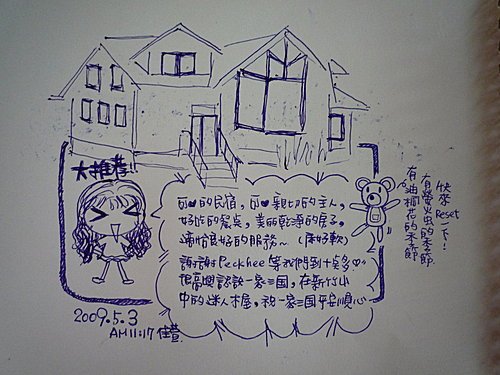 大推荐!!
有♥的民宿，有♥親切的主人，
好吃的餐点，美丽乾淨的房子，
適恰良好的服務~（床好軟）
謝謝Peckhee等我們到十点多♡
很高興認識一家三国，在新竹山
中的迷人木屋，祝一家三国平安順心
快來Reset一下！
有螢火虫的季節
有油桐花的季節
2009.5.3
AM11:17 佳萱